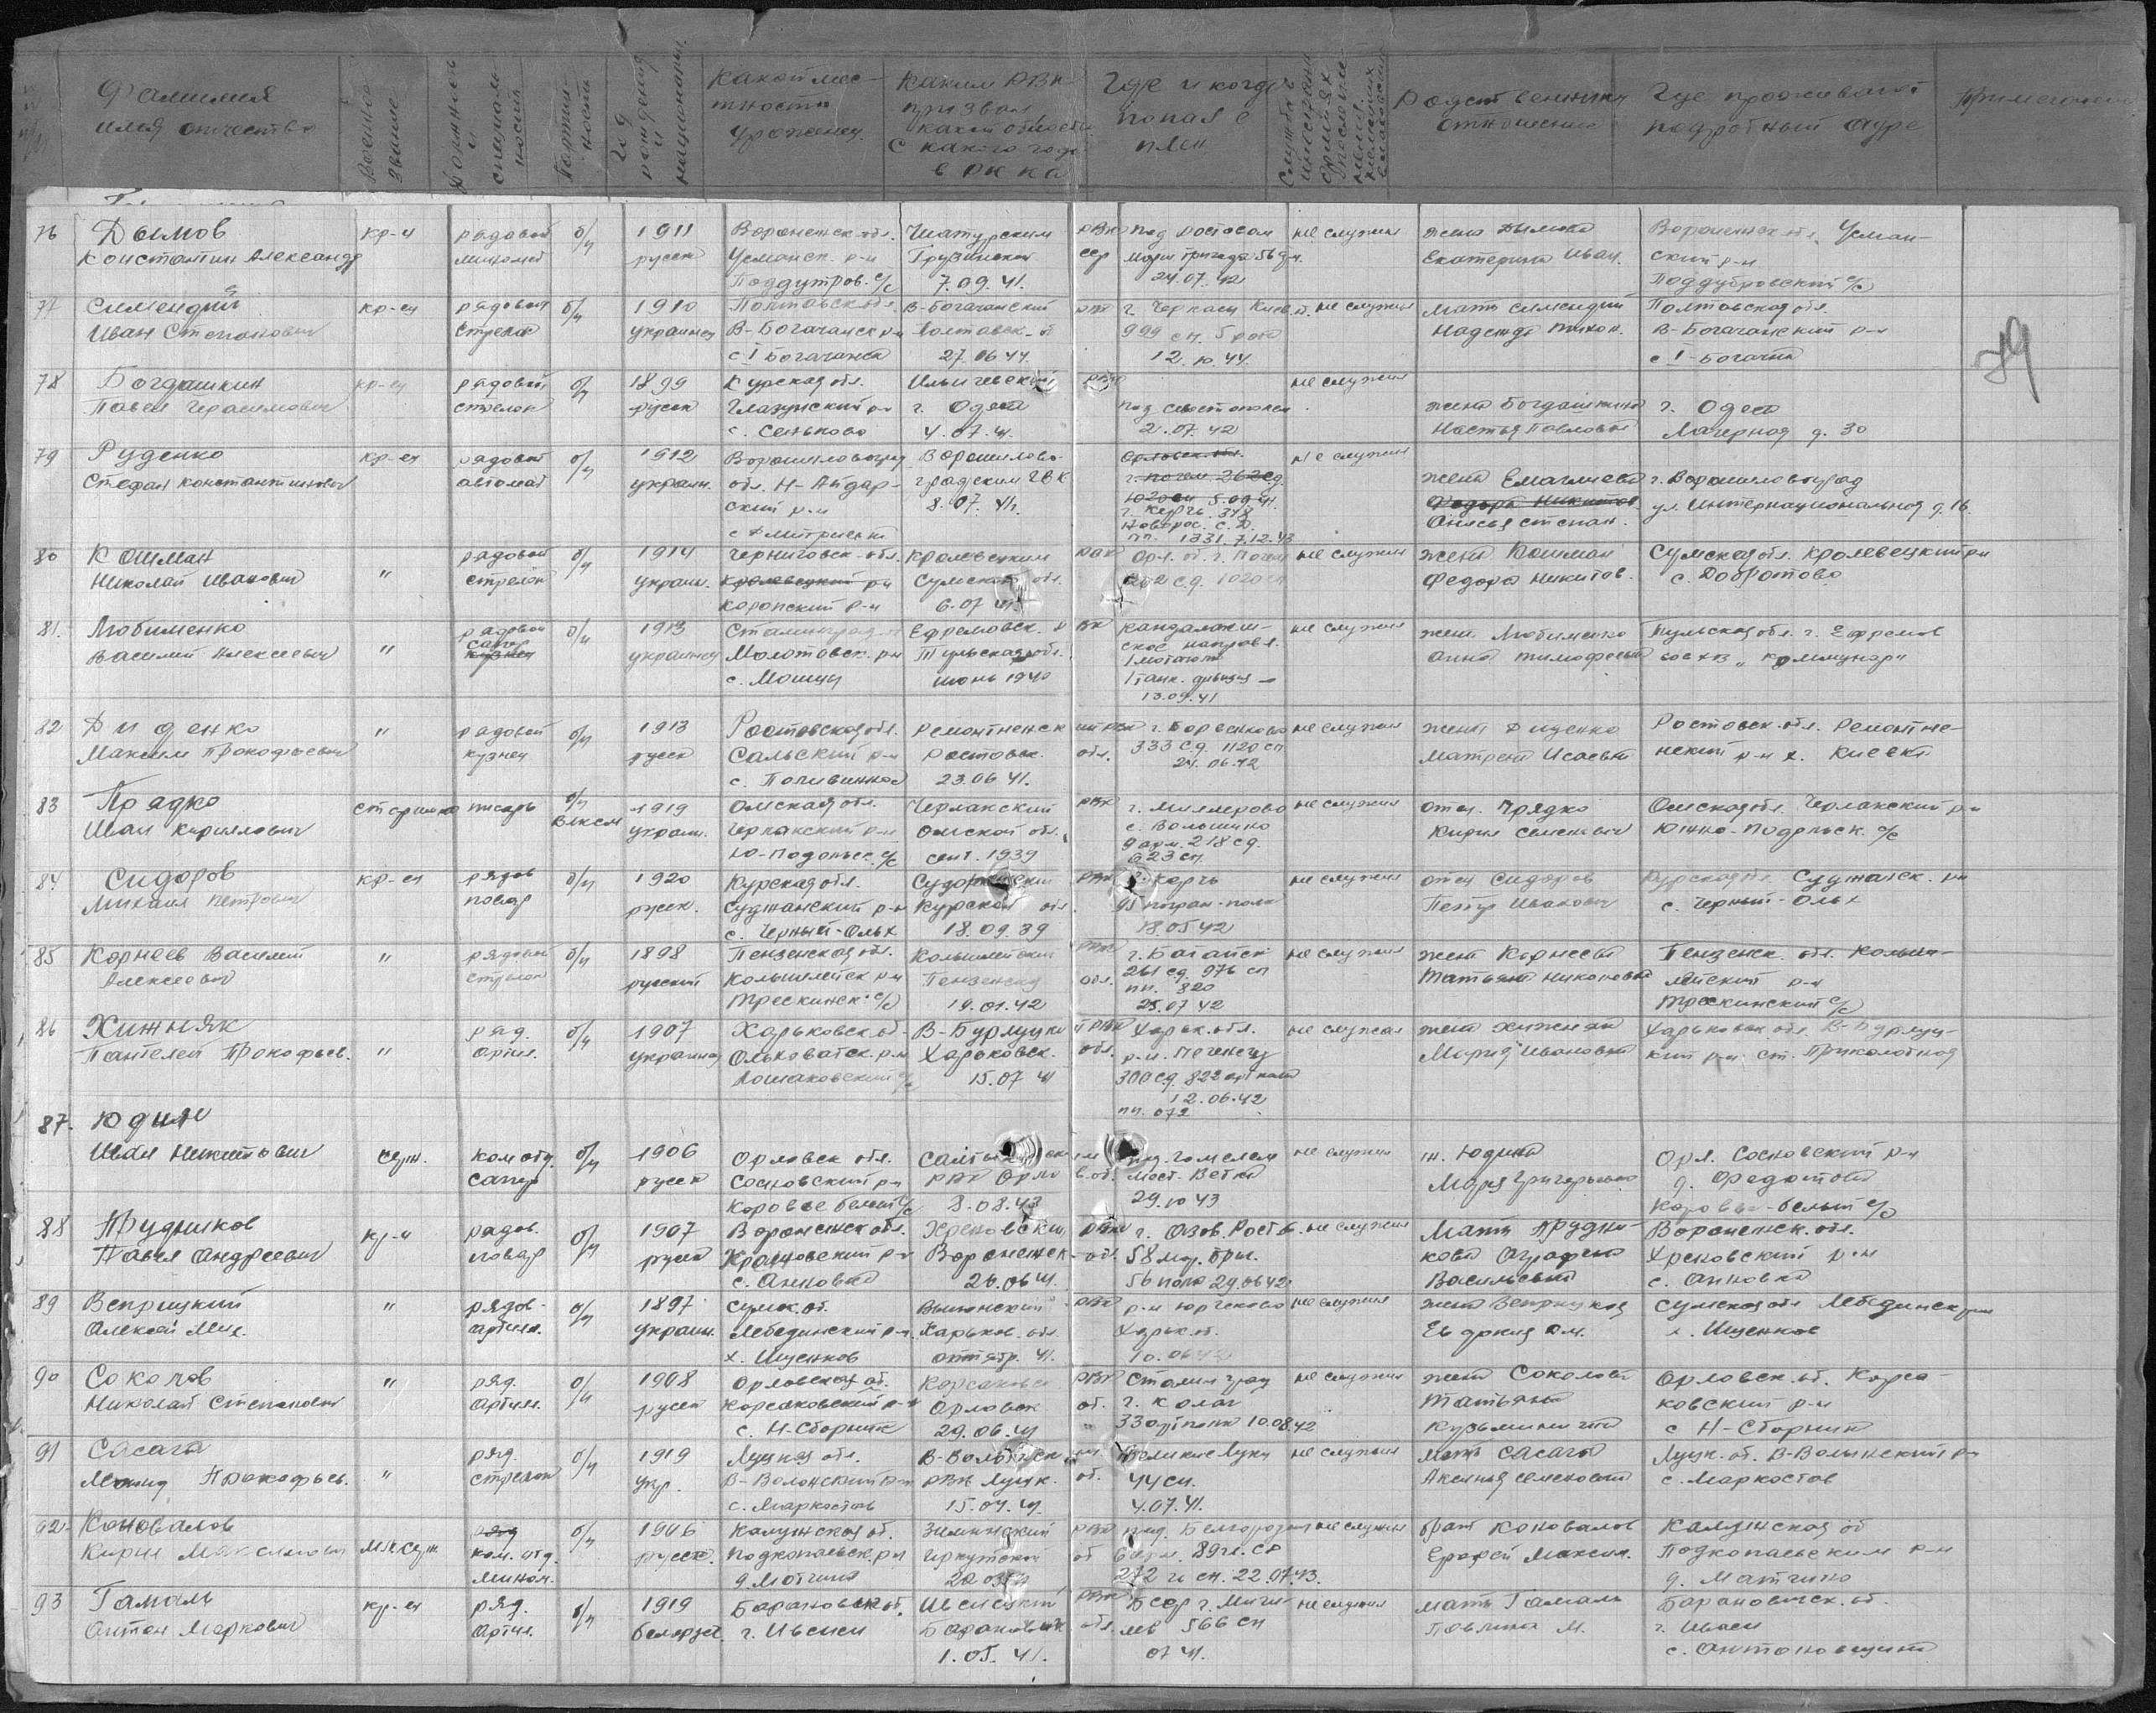 Фамилия имя отчество
Военное звание
Партийность
Год рождения и национальн.
Какой местности уроженец
Каким РВК призван какой области с какого года в РККА
Где и когда попал в плен
Родственники отношение
Где проживают подробный адре
Примечание
79
76 Дымов кр-ц рядовой б/п 1911 Воронежск. обл. Шатурским РВК под Ростовом не служил жена Дымова Воронежск. обл. Усман-
Константин Александр миномет русск Усманск. р-н Грузинской сср морск бригада 56 Екатерина Иван. ский р-н
Поддутров. с/с 7.09.41. 24.07.42 Поддубровский с/с
77 Симендий кр-ец рядовой б/п 1910 Полтавск обл. В-Богачанский рвк г. Черкасы Киев. о. не служил мать Симендий Полтавская обл.
Иван Степанович стрелок украинец В-Богачанск р-н Полтавск. о 999 сп. 5 рота Надежда Тихон. В-Богачанский р-н
с I Богачанка 27.06 44 12.10.44. с I-Богачка
78 Богдашкин кр-ец рядовой б/п 1899 Курская обл. Ильичевский РВК не служил
Павел Герасимович стрелок русск Глазунский р-н г. Одеса под Севастополем жена Богдашкина г. Одеса
с. Сеньково 4.07.41. 2.07.42 Настья Павловна Лагерная д. 30
79 Руденко кр-ец рядовой б/п 1912 Ворошиловоград Ворошилово- Орловск. обл. не служил
Стефан Константинович автомат украин. обл. Н-Айдар- градским ГВК г. Почеп 262 сд жена Емаглиева г. Ворошиловоград
ский р-н 8.07.41. 1020 сп 5.09.41. Федора Никитов. ул. Интернациональная д. 16.
с Дмитриевка г. Керчь 318 Новорос. с.д. Анисья Степан.
пп. 1331 7.12.43
80 Кошман " рядовой б/п 1914 Черниговск. обл. Кролевецким РВК Орл. об. г. Почеп не служил жена Кошман Сумская обл. Кролевецкий р-н
Николай Иванович стрелок украин. Кролевецкий р-н Сумской обл. 262 сд. 1020 сп Федора Никитов. с. Добротово
Коропский р-н 6.07 41.
81. Любименко " рядовой б/п 1913 Сталинград. Ефремовск. РВК Кандалакш- не служил жена Любименко Тульская обл. г. Ефремов
Василий Алексеевич сапер кузнец украинец Молотовск. р-н Тульская обл. ское направл. Анна Тимофеевна совхоз „Коммунар"
с. Мошны июнь 1940 1 мотополк
1 танк. дивизия
13.09.41
82 Диденко " рядовой б/п 1913 Ростовская обл. Ремонтненск РВК г. Боровеньково не служил жена Диденко Ростовск. обл. Ремонтне-
Максим Прокофьевич кузнец русск Сальский р-н Ростовск. обл. 333 сд. 1120 сп Матрена Исаевна нский р-н х. Киевка
с. Поливянка 23.06 41. 24.06.42
83 Прядко старшина писарь б/п ВЛКСМ 1919 Омская обл. Черлакский РВК г. Миллерово не служил отец Прядко Омская обл. Черлакский р-н
Иван Кириллович украин. Черлакский р-н Омской обл. с. Волошино Кирил Семенович Южно-Подольск. с/с
Ю-Подольск. с/с сент. 1939 9 арм. 218 сд.
623 сп.
84 Сидоров кр-ец рядов б/п 1920 Курская обл. Суджанский РВК г. Керчь не служил отец Сидоров Курская обл. Суджанск. р-н
Михаил Петрович повар русск. Суджанский р-н Курской обл. 95 погран-полк Петр Иванович с. Черный-Ольх
с. Черный-Ольх 18.09.39 18.05 42
85 Корнеев Василий " рядовой б/п 1898 Пензенская обл. Колышлейский РВК г. Батайск не служил жена Корнеева Пензенск. обл. Колыш-
Алексеевич стрелок русский Колышлейск р-н Пензенская обл. 261 сд, 976 сп Татьяна Николаевна лейский р-н
Трескинск. с/с 19.01.42 пп. 820 Трескинский с/с
25.07 42
86 Хижняк " ряд. б/п 1907 Харьковск. об. В-Бурлуцкий РВК Харьк. обл. не служил жена Хижняк Харьковск обл. В-Бурлуц-
Пантелей Прокофьев. артил. украинец Ольховатск. р-н Харьковск. обл. р-н. Печенеги Мария Ивановна кий р-н ст. Приколотная
15.07 41 300 сд. 822 арт полк
12.06.42
пп. 072
87. Юдин
Иван Никитович серж. ком отд. б/п 1906 Орловск обл. под Гомелем не служил ж. Юдина Орл. Сосковский р-н
сапер русск Сосковский р-н РВК Орлов. об. мест. Ветка Мария Григорьевна д. Федотовка
Коровье болот с/с 3.08.43 29.10 43 Коровье-болот с/с
88 Прудников кр-ц рядов. б/п 1907 Воронежск обл. Хреновский РВК г. Азов. Рост о. не служил Мать Прудни- Воронежск. обл.
Павел Андреевич повар русск Хреновский р-н Воронежск. об. 58 мор. бри. кова Аграфена Хреновский р-н
с. Анновка 26.06 41. 56 полк 29.06 42 Васильевна с. Анновка
89 Веприцкий " рядов. б/п 1897 Сумск. об. РВК р-н Юрченково не служил жена Веприцкая Сумская обл Лебединск р-н
Алексей Мих. артил. украин. Лебединский р-н Харьков. обл. Харьк. об. Евдокия Дм. х. Ищенков
х. Ищенков октябр. 41. 10.06 42
90 Соколов " ряд. б/п 1908 Орловская об. Корсаковск РВК Сталинград не служил жена Соколова Орловск. об. Корса-
Николай Степанович артил. русск Корсаковский р-н Орловск об. г. Калач Татьяна ковский р-н
с. Н-Сборник 29.06.41 33 арт полк 10.08.42 Кузьминична с Н-Сборник
91 Сасага " ряд. б/п 1919 Луцкая обл. Великие Луки не служил мать Сасага Луцк. об. В-Волынский р-н
Леонид Прокофьев. стрелок укр. В-Волонский р-н РВК Луцк. об. 44 сп. Аксинья Семеновна с. Маркостав
с. Маркостав 15.04.41 4.07.41.
92. Коновалов мл серж ряд б/п 1906 Калужская об. Зиминский РВК под. Белгородом не служил брат Коновалов Калужская об
Кирил Максимович ком. отд. русск. Подкопаевск. р-н Иркутской об 6 арм. 89 гв. сд Ерофей Максим. Подкопаевским р-н
мином. д. Мотчина 272 гв сп. 22.07.43. д. Матчино
93 Гамаль кр-ец ряд. б/п 1919 Барановическ об. Ивенецкий РВК БССР г. Моги- не служил мать Гамаль Барановическ. об.
Антон Маркович артил. белорус. г. Ивенец Барановичск обл. лев 566 сп Павлина М. г. Ивенец
1.05.41. 07 41. с. Антоновщина